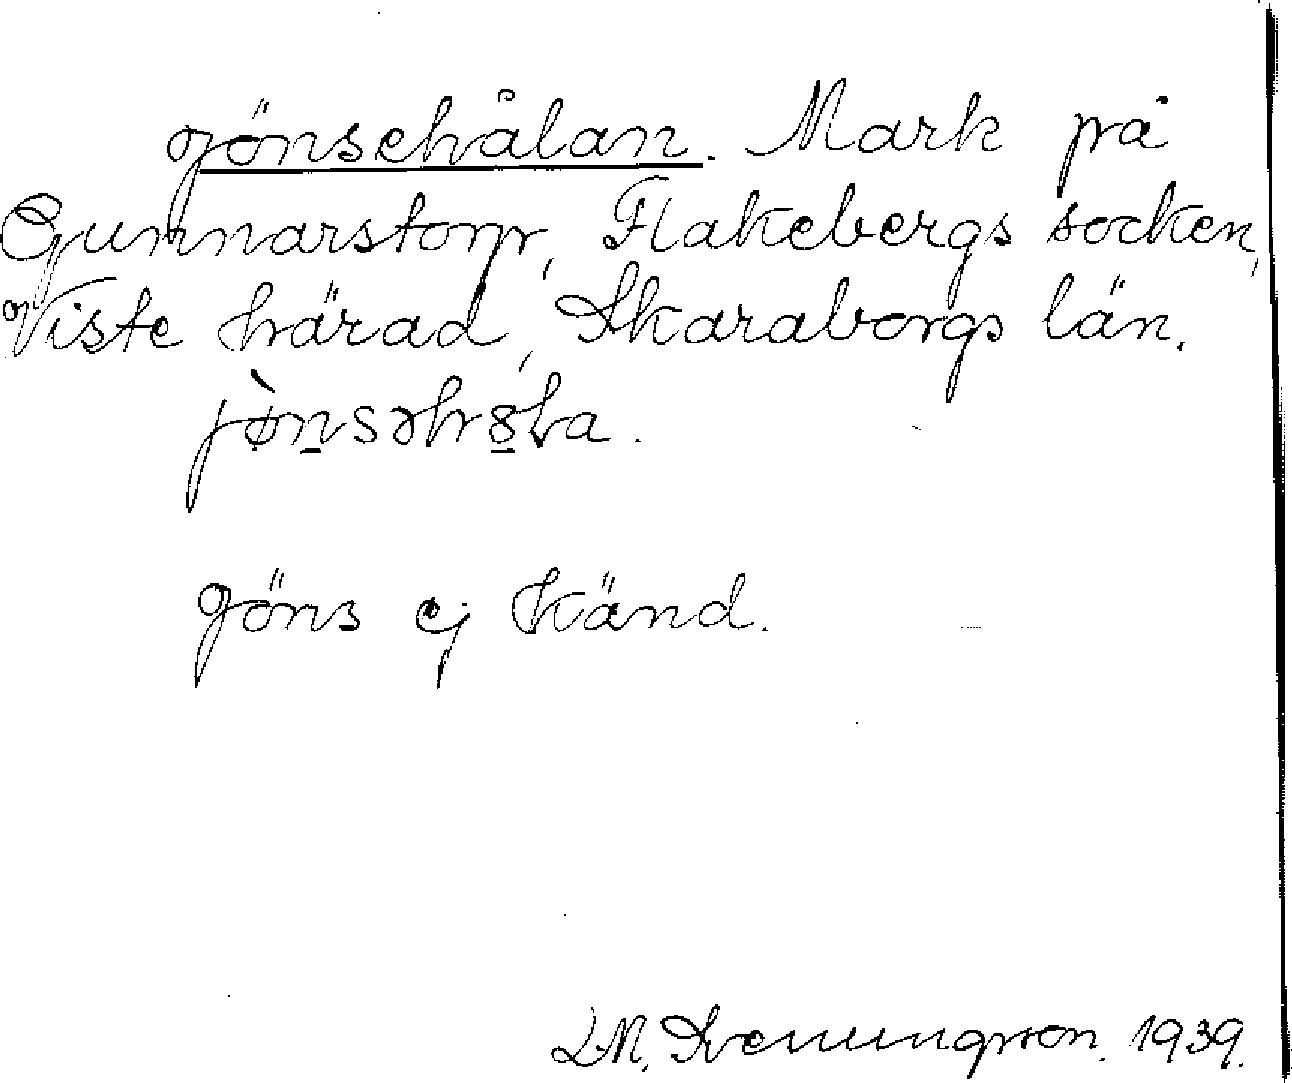 gönsehålan. Mark på
Gunnarstorp, Flakebergs socken,
Viste härad, Skaraborgs län.
jö̀nsəhɷla.
Göns ej känd.
L M. Svenungsson. 1939.